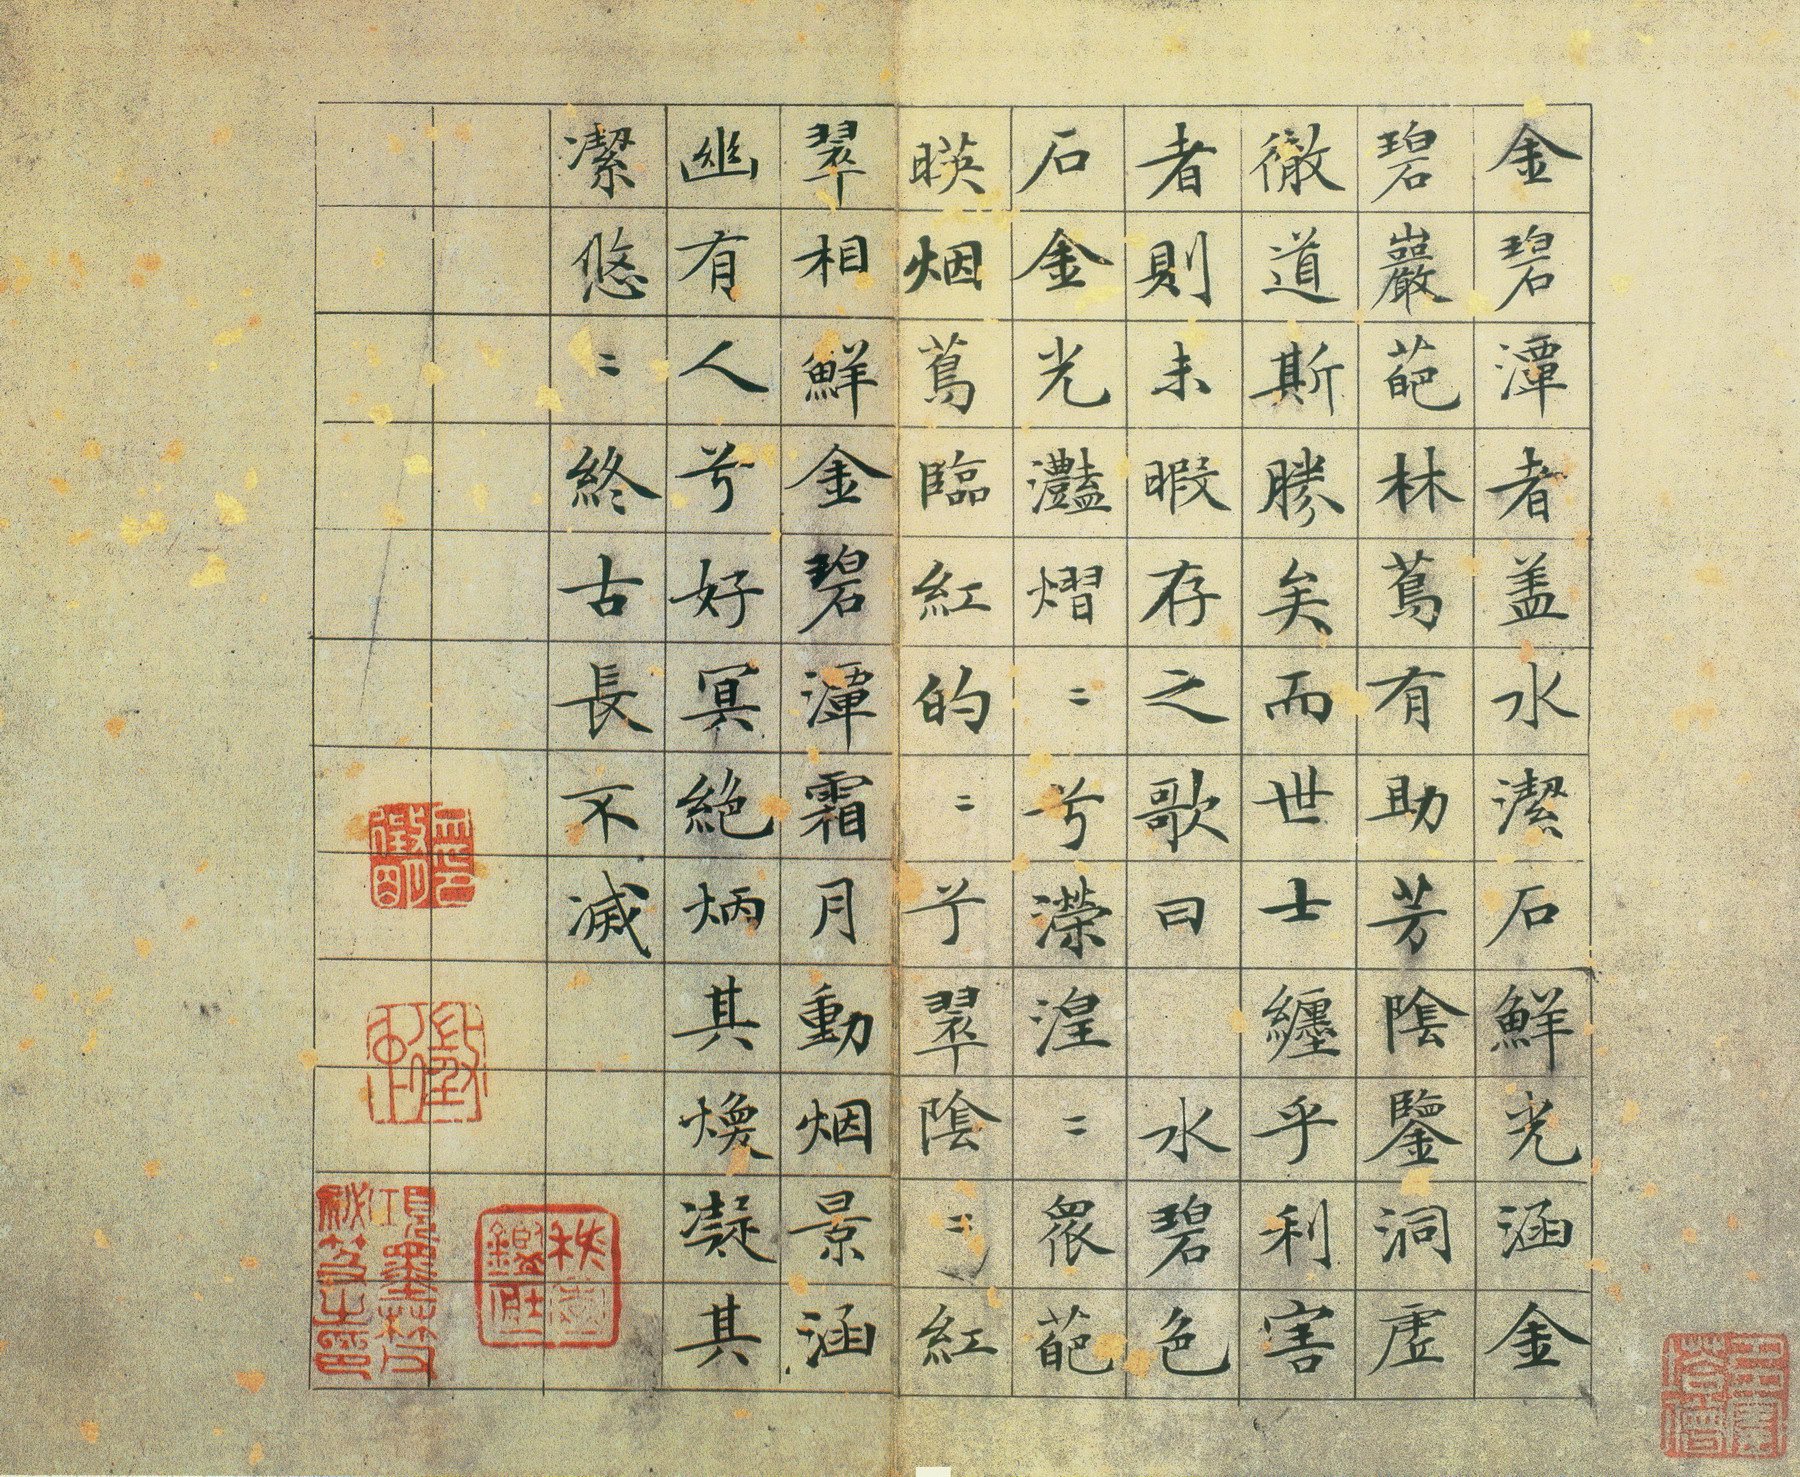 金碧潭者盖水潔石鮮光涵金
碧巖葩林蔦有助芳陰鑒洞虛
徹道斯勝矣而世士纏乎利害
者則未暇存之歌曰　水碧色
石金光灩熠〻兮濴湟〻眾葩
暎烟蔦臨紅的〻兮翠陰〻紅
翠相鮮金碧潭霜月動烟景涵
幽有人兮好冥絕炳其煥凝其
潔悠〻終古長不滅